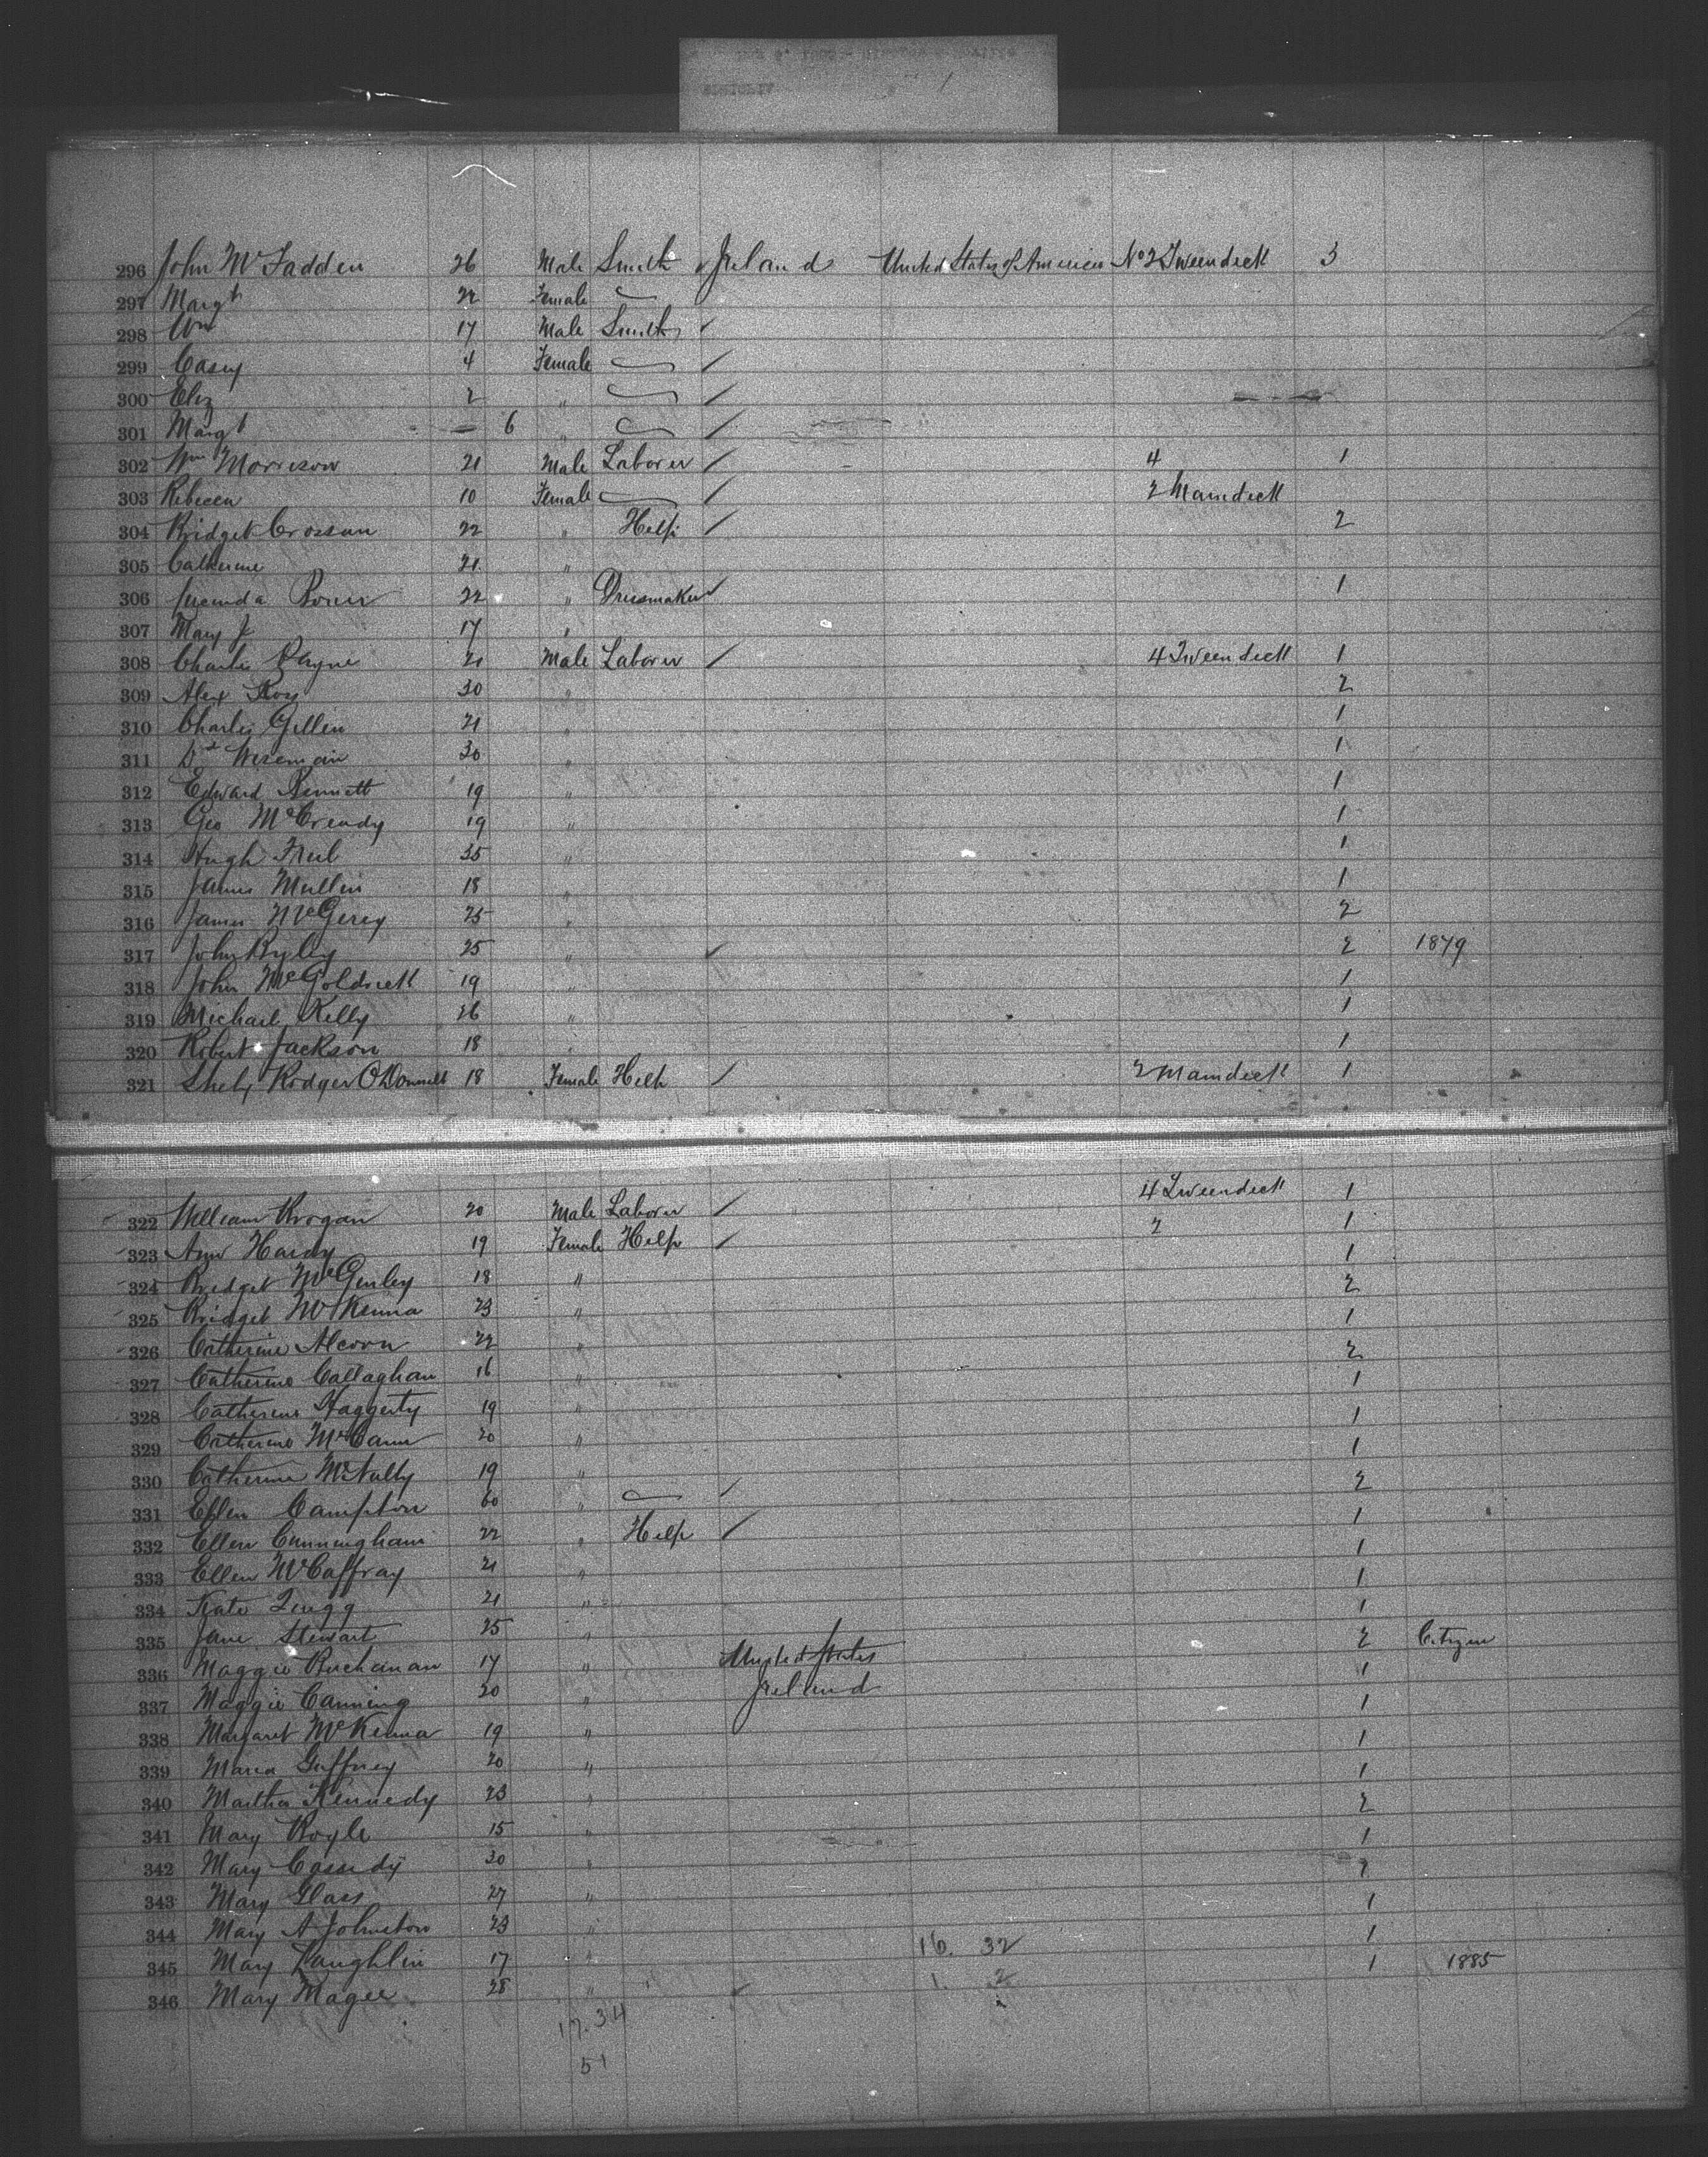 296 John McFadden 26 Male Smith Ireland United States of America No 2 Tweendeck 3
297 Margt 22 Female
298 Wm 17 Male Smith
299 Casey 4 Female
300 Eliz 2 "
301 Margt 6 "
302 Wm Morrison 21 Male Laborer 4 1
303 Rebecca 10 Female 2 Maindeck
304 Bridget Crossan 22 " Help 2
305 Catherine 21 "
306 22 " Dressmaker 1
307 Mary J 17 "
308 Charles Payne 21 Male Laborer 4 Tweendeck 1
309 Alex Roy 30 " 2
310 Charles Gillen 21 " 1
311 Wiseman 30 " 1
312 Edward Bennett 19 " 1
313 Geo McCready 19 " 1
314 Hugh Friel 35 " 1
315 James Mullin 18 " 1
316 James McGerey 25 " 2
317 John Ryley 25 " 2 1879
318 John McGoldrick 19 " 1
319 Michael Kelly 26 " 1
320 Robert Jackson 18 " 1
321 Rodger O'Donnell 18 Female Help 2 Maindeck 1
322 William Brogan 20 Male Laborer 4 Tweendeck 1
323 Ann Hardy 19 Female Help 2 1
324 Bridget McGinley 18 " 1
325 Bridget McKenna 23 " 2
326 Catherine Alcorn 22 " 1
327 Catherine Callaghan 16 " 2
328 Catherine Haggerty 19 " 1
329 Catherine McCann 20 " 1
330 Catherine McNulty 19 " 1
331 Ellen Campton 60 " 2
332 Ellen Cunningham 22 " Help 1
333 Ellen McCaffray 21 " 1
334 Kate Quigg 21 " 1
335 Jane Stewart 25 " 1
336 Maggie Buchanan 17 " United States 2 Citizen
337 Maggie Canning 20 " Ireland 1
338 Margaret McKenna 19 " 1
339 Maria Gaffney 20 " 1
340 Martha Kennedy 23 " 1
341 Mary Boyle 15 " 2
342 Mary Cassidy 30 " 1
343 Mary Glass 27 " 2
344 Mary A Johnston 23 " 1
345 Mary Laughlin 17 " 16. 32 1
346 Mary Magee 28 " 1. 2 1 1885
17. 34
51